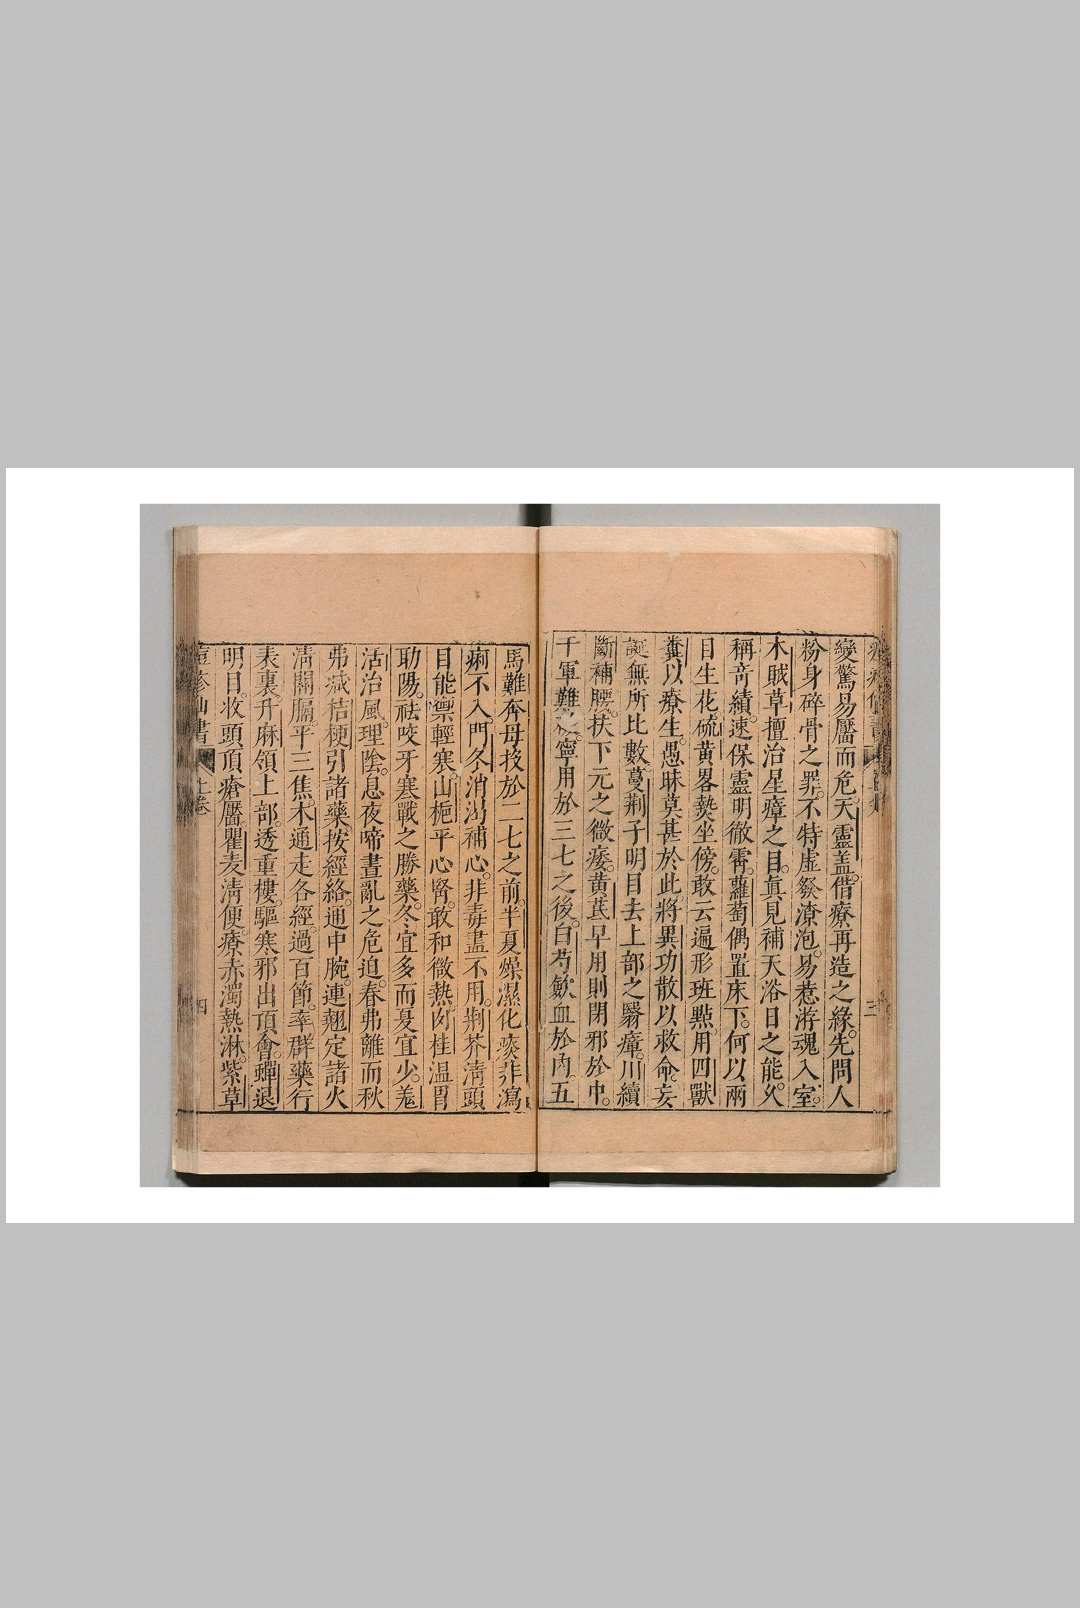 變驚易靨而危。天靈盖。偕療再造之緣。先問人
粉身碎骨之罪。不特虛發潦泡。易惹游魂入室。
木賊草擅治星瘴之目。真見補天浴日之能。久
稱竒績。速保靈明徹霄。蘿蔔偶置床下。何以兩
目生花。硫黄畧爇坐傍。敢云遍形班點。用四獸
糞以療生。愚昧莫甚於此。將異功散以救命。妄
誕無所比數。蔓荆子明目去上部之翳瘴。川續
斷補腰。扶下元之微痿。黄芪早用則閉邪於中。
千軍難 寧用於三七之後。白芍歛血於内。五
馬難奔。母投於二七之前。半夏燥濕化痰。非瀉
痢不入門。冬消渇補心。非毒盡不用。荆芥淸頭
目能禦輕寒。山梔平心腎。敢和微熱。肉桂温胃
助陽。祛咬牙寒戰之勝藥。冬宜多而夏宜少。羗
活治風。理陰。息夜啼晝亂之危迫。春弗離而秋
弗減。桔梗引諸藥按經絡。通中腕。連翹定諸火
淸關膈。平三焦。木通走各經。過百節。率群藥行
表裏。升麻領上部。透重樓。驅寒邪出頂會。蟬退
明目。收頭頂瘡靨。瞿麦淸便。療赤濁熱淋。紫草
痘疹仙書 上卷 四